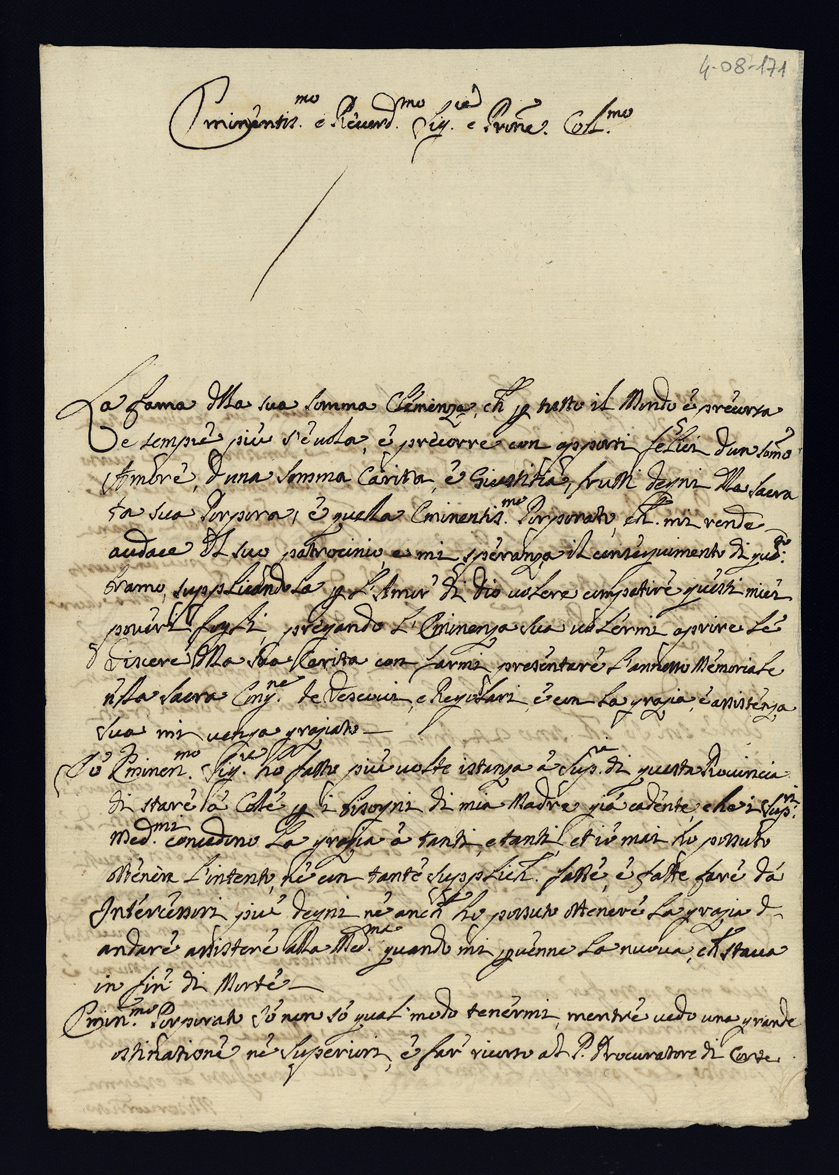 4-08-171
Eminentis.mo e Reverd.mo Sig.re e Prone. Coll.mo
La fama della sua somma Clemenza, ch p tutto il Mondo è precorsa
e sempre più s'e vola, e precorre con opporti felici d'un somo
Amore, d'una somma Carità, e Giustitia, frutti degni della sacra
ta sua Porpora, è quella Eminentis.mo Porporato, ch. mi rende
audace del suo patrocinio e mi speranza il conseguimento di
bramo, supplicandola p l'Amor di Dio volere compatire questi miei
poveri fogli pregando l'Eminenza sua volermi aprire le
viscere della sua Carità con farmi presentare l'annesso Memoriale
nella sacra Cong.ne de Vescovi, e Regolari, e con la grazia, e assistenza
sua mi venga graziato
Io Eminen.mo Sig.re ho fatto più volte istanza a Sup.ri di questa Provincia
di stare là Colé p i bisogni di mia Madre già cadente, che i Sup.ri
Med.mi concedino la grazia a tanti, e tanti et io mai ho possuto
ottenir l'intento, né con tante supplich. fatte, e fatte fare da
Intercessori più degni né anch ho possuto ottenere la grazia d
andare assistere alla Med.ma quando mi pvenne la nuova, ch stava
in fin di Morte
Emin.mo Porporato Io non sò qual modo tenermi, mentre vedo una grande
ostinatione ne Superiori, e far ricorso al P. Procuratore di Corte